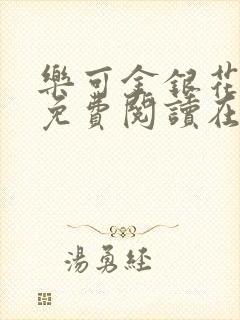 樂可金銀花
免費閱讀在
湯勇經